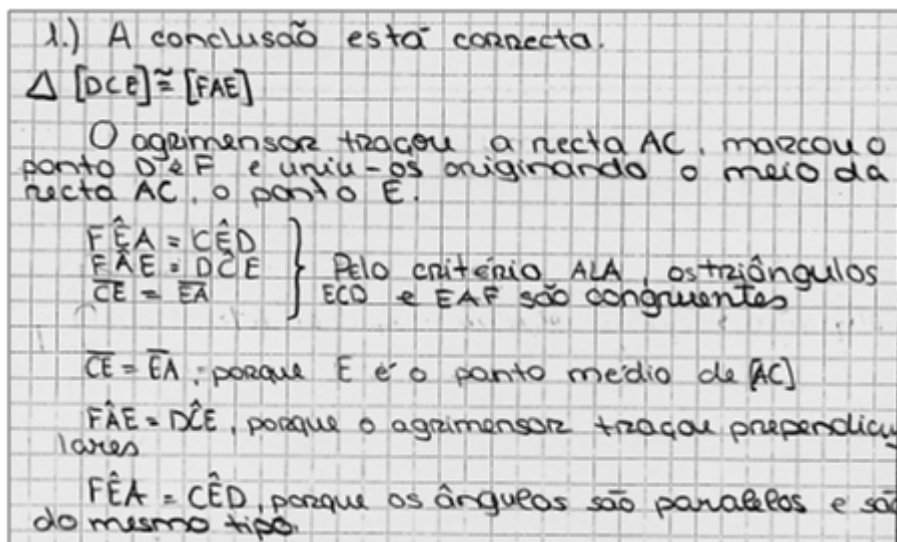 1.) A conclusão está correcta.
Δ [DCE] ≅ [FAE]
O agrimensor traçou a recta AC, marcou o
ponto D e F e uniu-os originando o meio da
recta AC, o ponto E.
FÊA = CÊD
FÂE = DĈE
CE = EA
Pelo critério ALA, os triângulos
ECD e EAF são congruentes
CE = EA, porque E é o ponto médio de [AC]
FÂE = DĈE, porque o agrimensor traçou prependicu
lares
FÊA = CÊD, porque os ângulos são paralelos e são
do mesmo tipo.